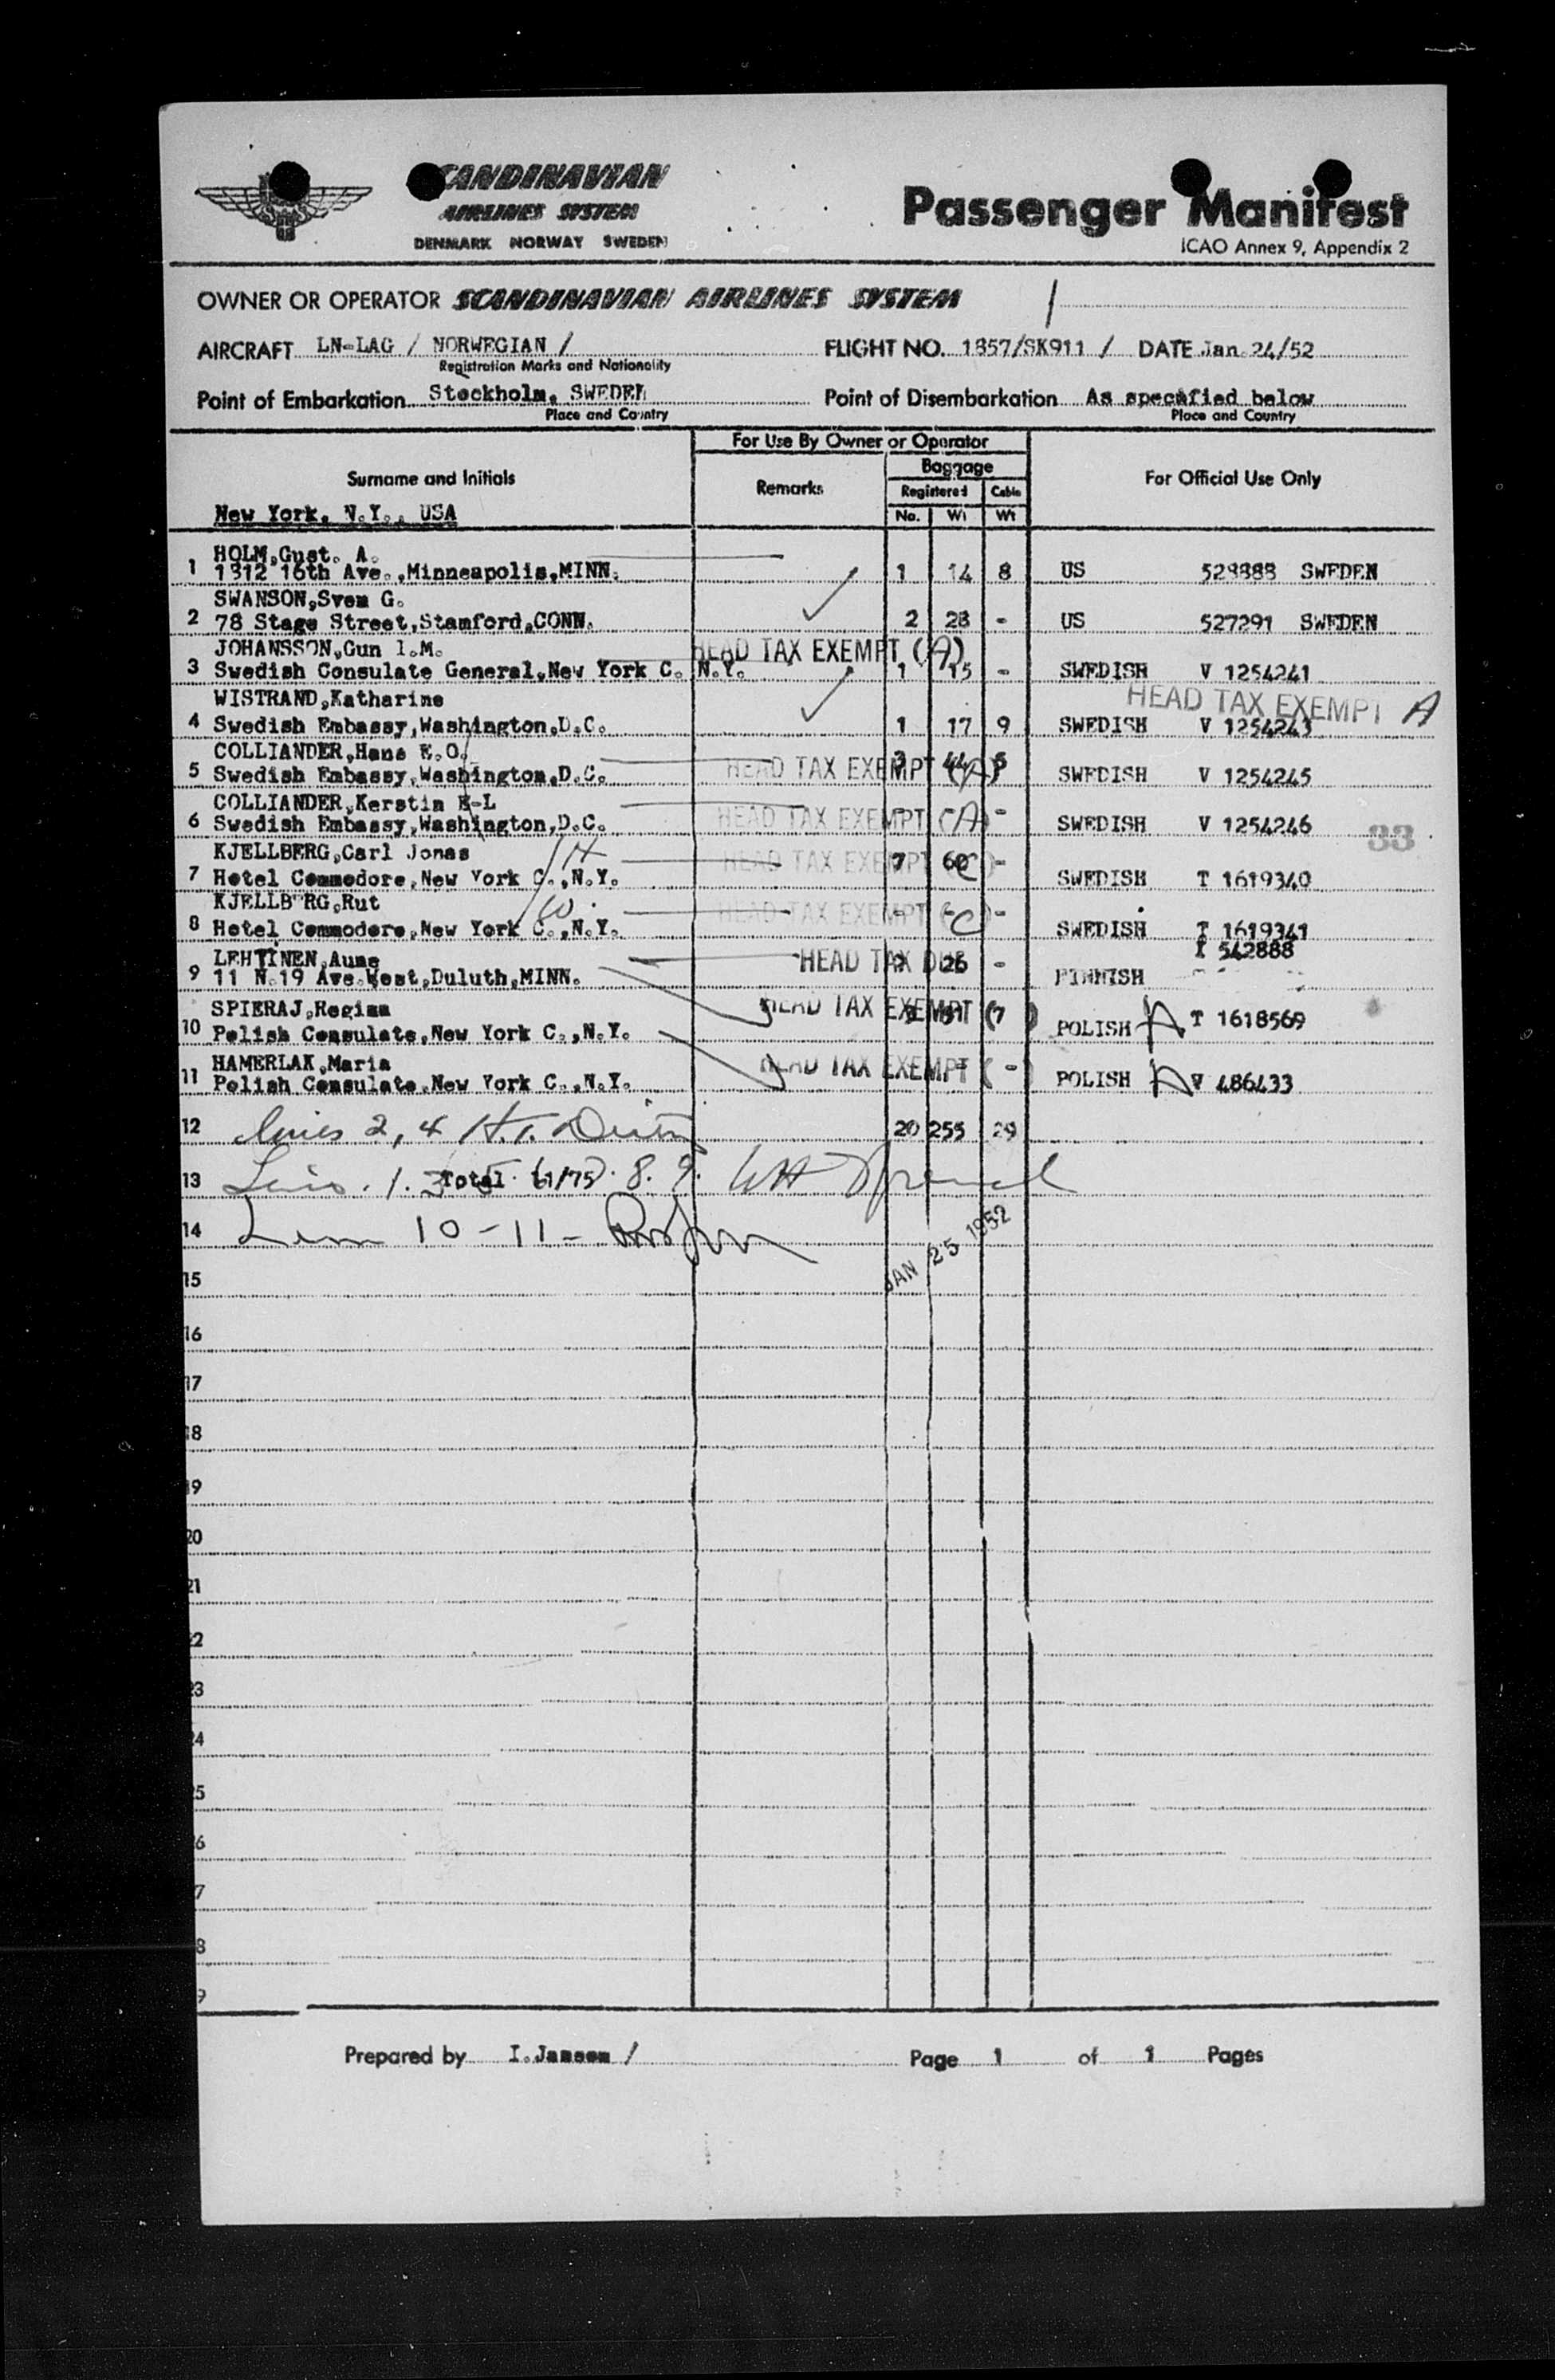 SCANDINAVIAN
AIRLINES SYSTEM
DENMARK NORWAY SWEDEN
Passenger Manifest
ICAO Annex 9, Appendix 2
OWNER OR OPERATOR SCANDINAVIAN AIRLINES SYSTEM /
AIRCRAFT LN-LAG / NORWEGIAN / FLIGHT NO. 1857/SK911 / DATE Jan. 24/52
Registration Marks and Nationality
Point of Embarkation Stockholm, SWEDEN Point of Disembarkation As specified below
Place and Country Place and Country
For Use By Owner or Operator
Surname and Initials Remarks Baggage For Official Use Only
Registered Cabin
New York, N.Y., USA No. Wt Wt
HOLM,Gust. A.
1 1312 16th Ave.,Minneapolis,MINN. 1 14 8 US 528888 SWEDEN
SWANSON,Sven G.
2 78 Stage Street,Stamford,CONN. 2 28 - US 527291 SWEDEN
JOHANSSON,Gun I.M. HEAD TAX EXEMPT (A)
3 Swedish Consulate General,New York C. N.Y. 1 15 - SWEDISH V 1254241
WISTRAND,Katharine HEAD TAX EXEMPT A
4 Swedish Embassy,Washington,D.C. 1 17 9 SWEDISH V 1254243
COLLIANDER,Hans E.O.
5 Swedish Embassy,Washington,D.C. HEAD TAX EXEMPT (A) 44 5 SWEDISH V 1254245
COLLIANDER,Kerstin E-L
6 Swedish Embassy,Washington,D.C. HEAD TAX EXEMPT (A) - SWEDISH V 1254246
33
KJELLBERG,Carl Jonas H
7 Hotel Commodore,New York C.,N.Y. HEAD TAX EXEMPT (C) 7 60 - SWEDISH T 1619340
KJELLBERG,Rut W.
8 Hotel Commodore,New York C.,N.Y. HEAD TAX EXEMPT (C) - SWEDISH T 1619341
LEHTINEN,Aune HEAD TAX DUE T 542888
9 11 N.19 Ave.West,Duluth,MINN. 26 - FINNISH
SPIERAJ,Regina HEAD TAX EXEMPT ( )
10 Polish Consulate,New York C.,N.Y. 7 POLISH A T 1618569
HAMERLAK,Maria HEAD TAX EXEMPT ( )
11 Polish Consulate,New York C.,N.Y. - - POLISH A V 486433
12 Lines 2, 4 H.T. 20 255 29
13 1. 3 Total 11/75 8. 9.
14 10-11-
JAN 25 1952
15
16
17
18
19
20
21
22
23
24
25
6
7
8
9
Prepared by I.Jansen / Page 1 of 1 Pages